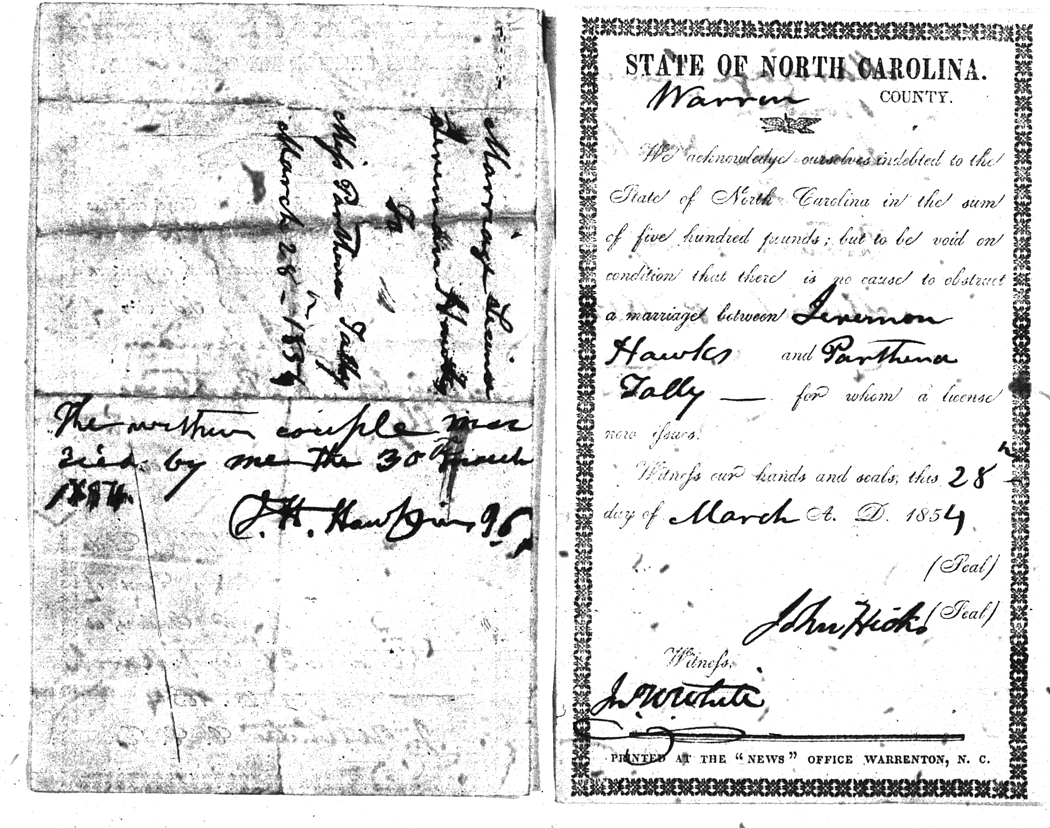 Marriage License
Jeremon
To
Miss Parthena Tally
March 28 - 1854
The within couple mar
ried by me the 30th March
1854.
J. H. Hawkins
STATE OF NORTH CAROLINA.
Warren COUNTY.
We acknowledge ourselves indebted to the
State of North Carolina in the sum
of five hundred pounds; but to be void on
condition that there is no cause to obstruct
a marriage between Jeremon
Hawks and Parthena
Tally — for whom a license
now issues.
Witness our hands and seals, this 28th
day of March A. D. 1854
(Seal)
John Hicks (Seal)
Witness,
Jn. W. White
PRINTED AT THE "NEWS" OFFICE WARRENTON, N. C.